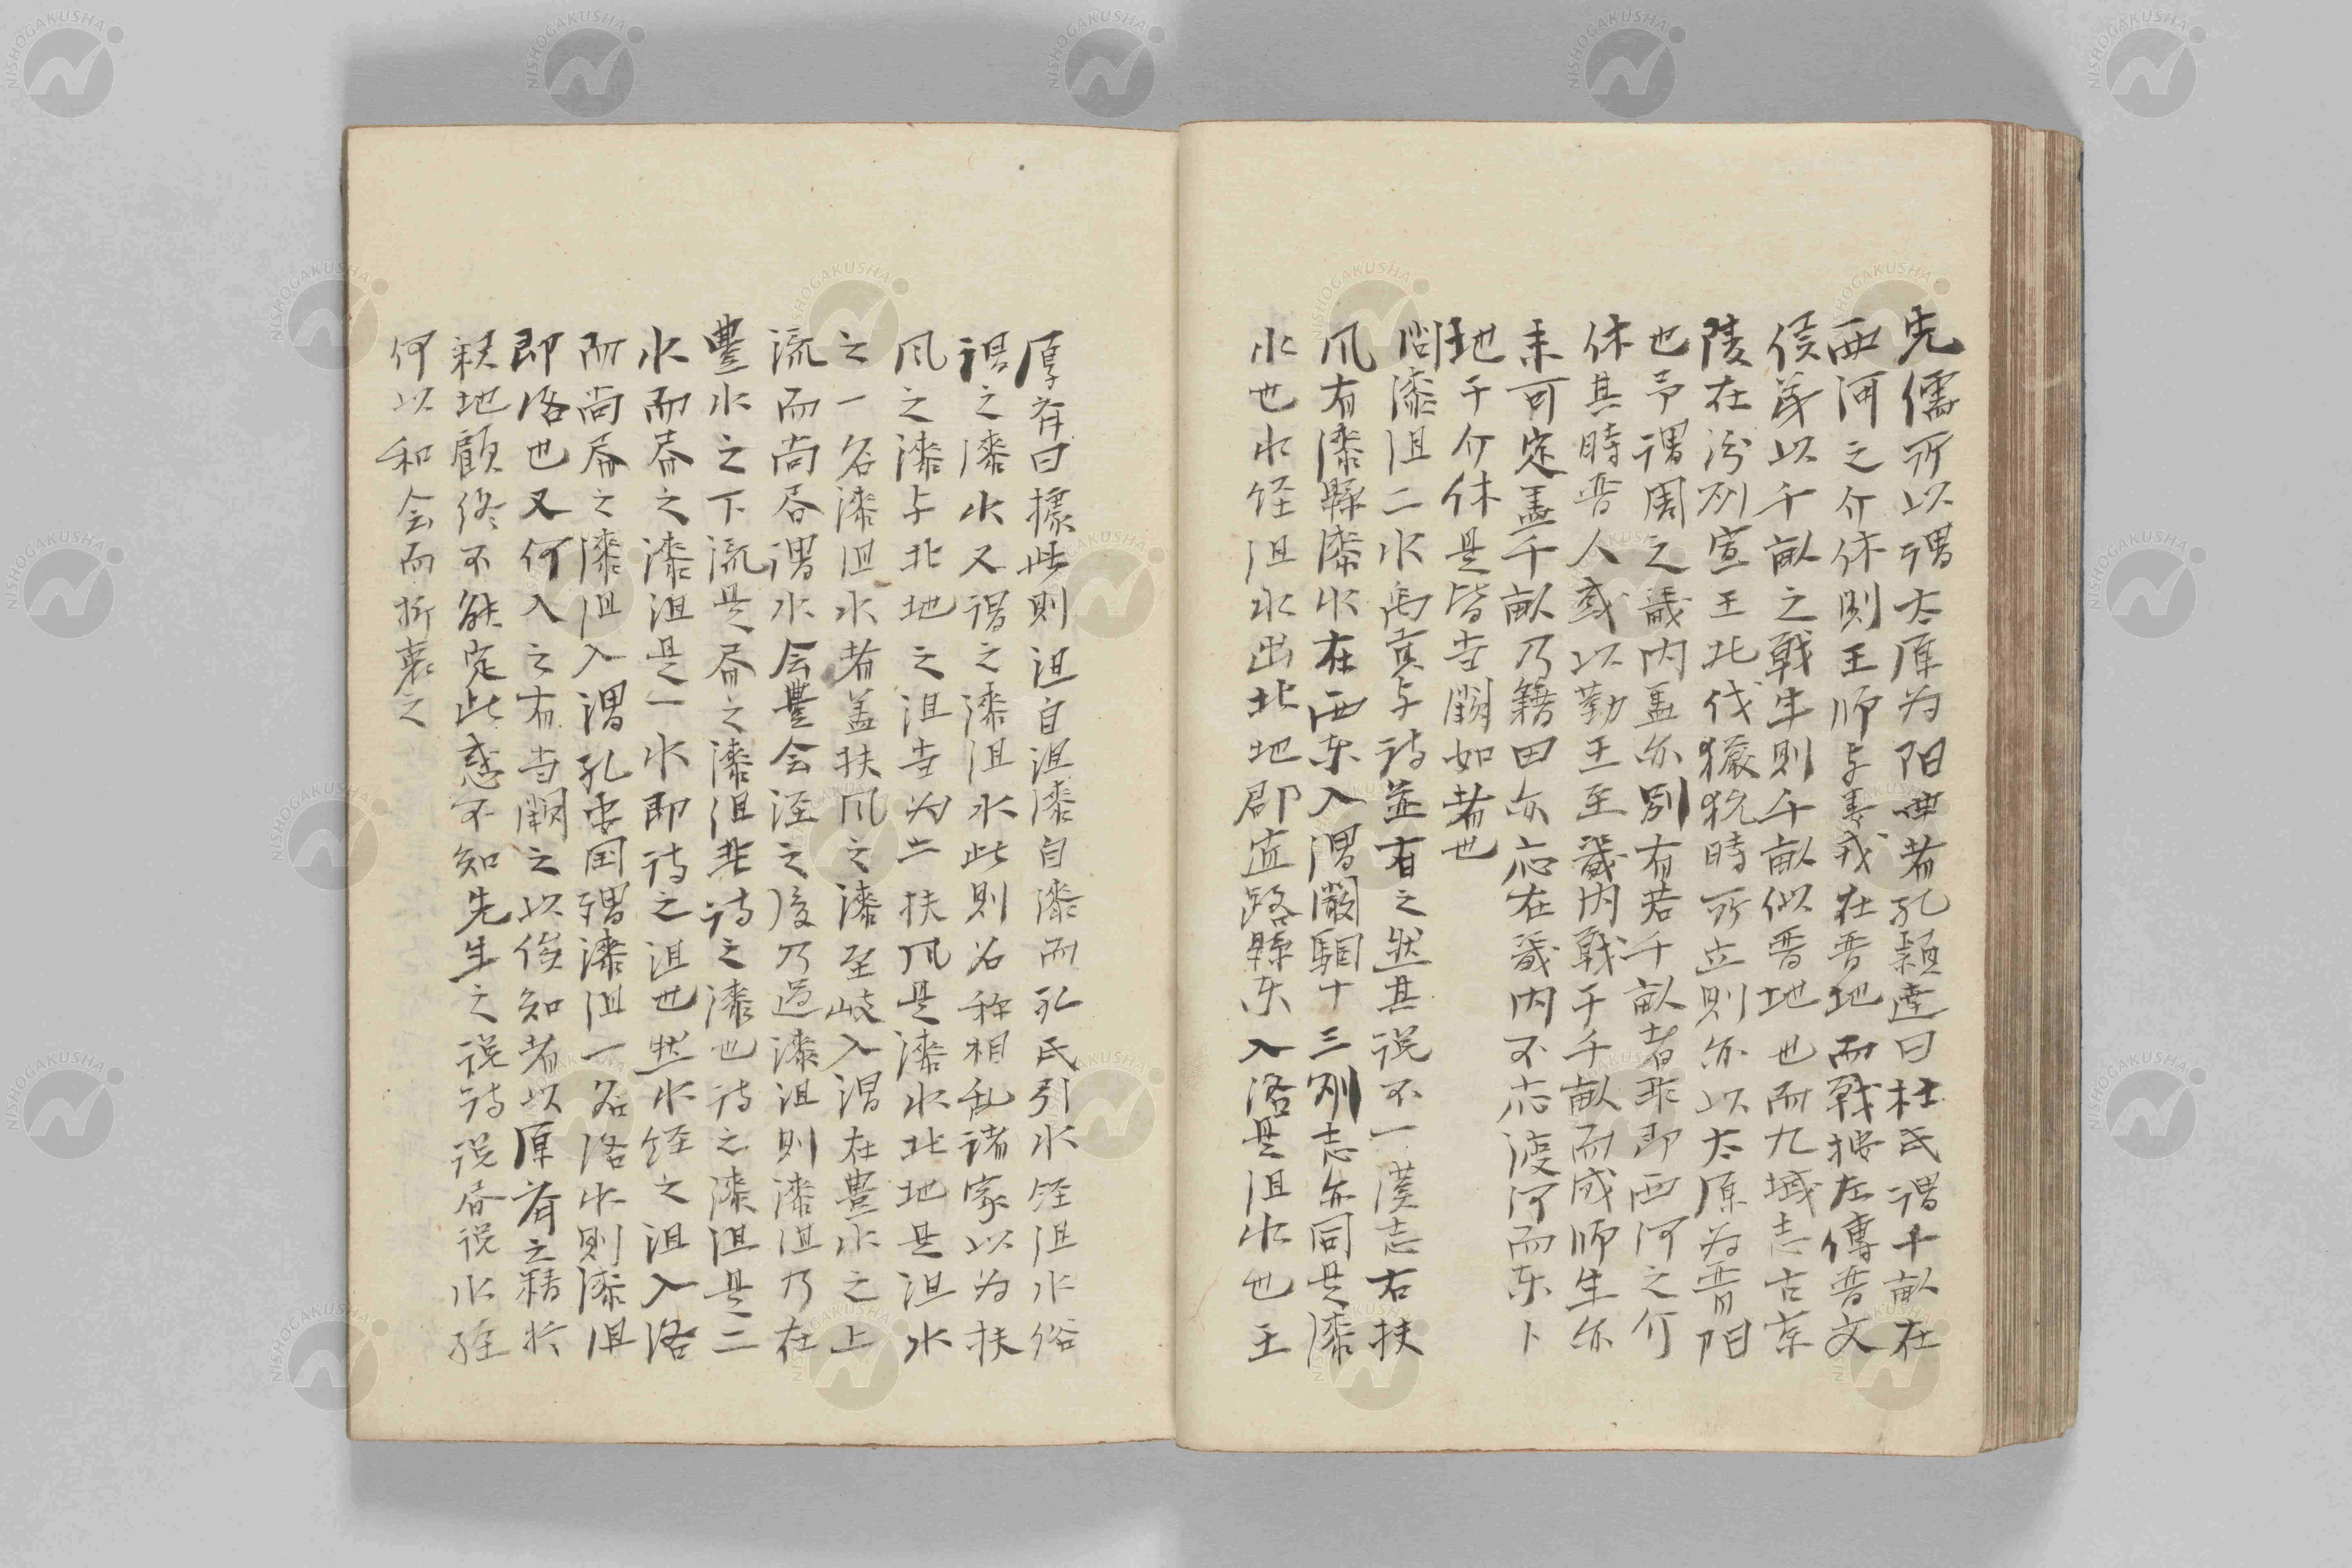 先儒所以謂太原为陽曲者孔穎達曰杜氏謂千畝在
西河之介休則王師与姜戎在晋地而戰按左傳晋文
侯㐧以千畝之戰生則千畝似晋地也而九域志古京
陵在汾州宣王北伐玁狁時所立則亦以太原为晋陽
也予謂周之畿内盖亦別有若千畝者非即西河之介
休其時晋人或以勤王至畿内戰于千畝而成師生亦
未可定盖千畝乃籍田亦応在畿内不応渡河而東卜
地于介休是皆当闕如者也
問漆沮二水禹貢与詩並有之然其説不一漢志右扶
風有漆縣漆水在西東入渭闞駰十三州志亦同是漆
水也水経沮水出北地郡直路縣東入洛是沮水也王
厚斎曰據此則沮自沮漆自漆而孔氏引水経沮水俗
謂之漆水又謂之漆沮水此則名称相乱諸家以为扶
風之漆与北地之沮当为二扶風是漆水北地是沮水
之一名漆沮水者盖扶風之漆至岐入渭在豊水之上
流而尚書渭水会豊会涇之後乃過漆沮則漆沮乃在
豊水之下流是書之漆沮非詩之漆也詩之漆沮是二
水而書之漆沮是一水即詩之沮也然水経之沮入洛
而尚書之漆沮入渭孔安国謂漆沮一名洛水則漆沮
即洛也又何入之有当闕之以俟知者以厚斎之精於
釈地顧終不能定此惑不知先生之説詩説書説水経
何以和会而折衷之
NISHOGAKUSHA